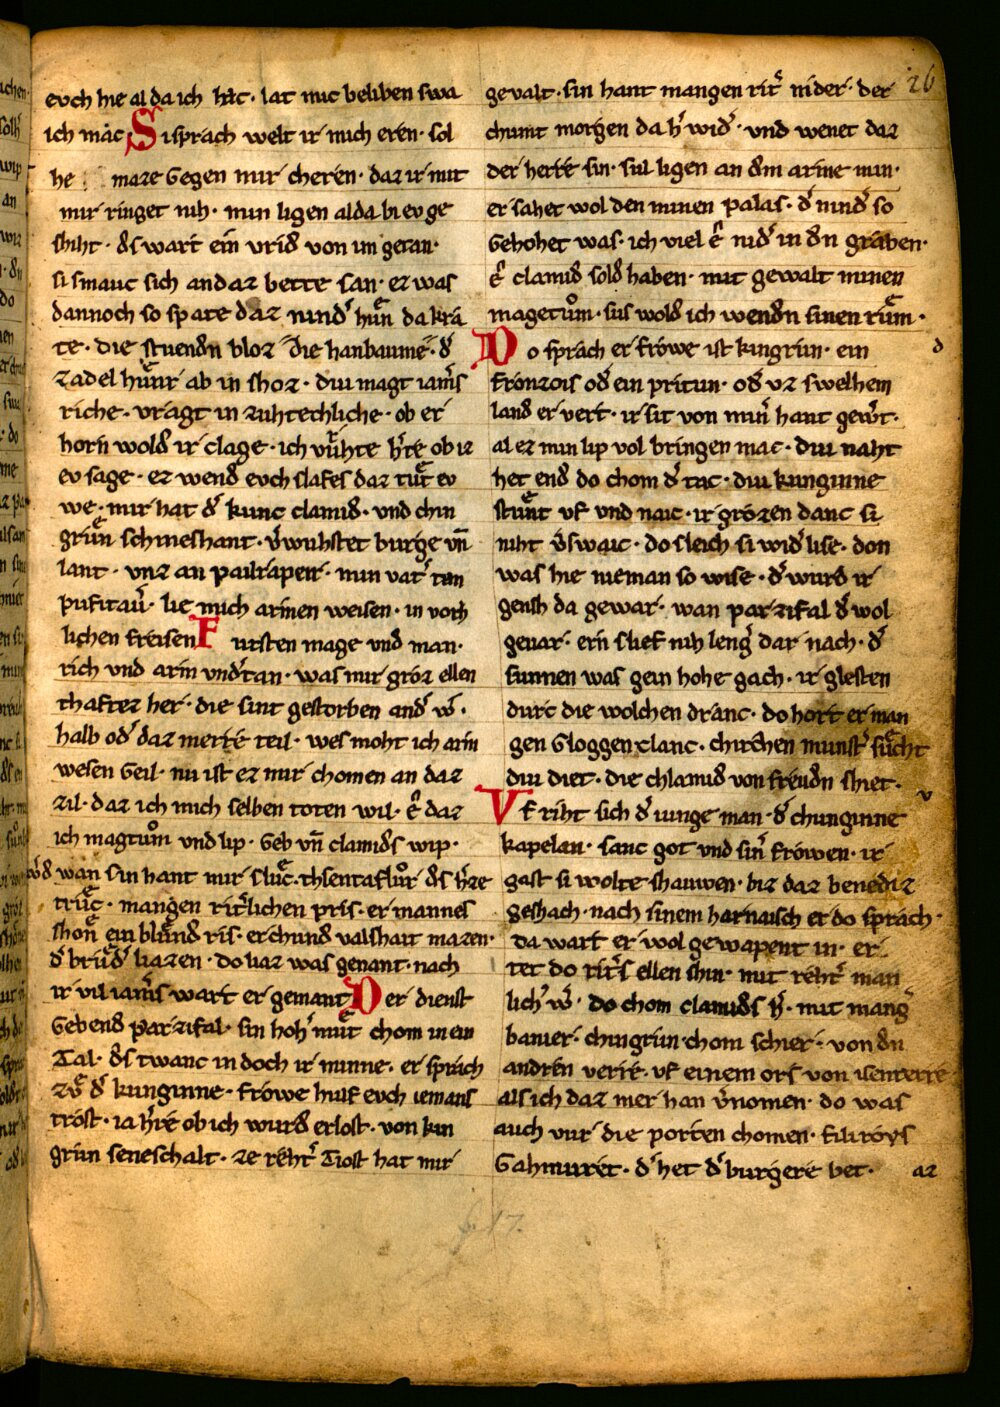 evch hie al da ich htc · lat mic beliben swa
ich mac Si sprach welt ir mich eren · sol
he maze Gegen mir cheren · daz ir mit
mir ringet niht · min ligen alda bi ev ge
shiht · ds wart ein vrid von im getan ·
si smauc sich an daz bette san · ez was
dannoch so spate daz nind' hun da kra
te · die stuendn bloz die hanbaume · d'
zadel hunr ab in shoz · div magt iam's
riche · vragt in zuhtechliche · ob er
horn wold ir clage · ich vuhte h're ob ir
ev sage · ez wend evch slafes daz tut ev
we · mir hat d' kunc clamid · vnd chin
grun schineshant · v'wuhstet burge vn̄
lant · vnz an pailrapeir · min vat' tan
punt'aur · lie mich armen weisen · in vorh
lichen freisen Fursten mage vnd man ·
rich vnd arm vnd'tan · was mir groz ellen
thaftez her · die sint gestorben and' w' ·
halb od' daz merre teil · wes moht ich arm
wesen Geil · nu ist ez mir chomen an daz
zil · daz ich mich selben toten wil · e' daz
ich magtum vnd lip · Geb vn̄ clamids wip ·
wan sin hant mir sluc · thsentaflur ds h'ze
truc · mangen rit'lichen pris · er mannes
shon ein blund ris · er chund valshait mazen ·
d' brud' liazen · do liaz was genant · nach
ir vil iam's wart er gemant Der dienst
Gebend parzifal · sin hoh' mut chom in ein
Tal · ds twanc in doch ir minne · er sprach
zv d' kunginne · frowe hilf evch iemans
trost · ia h're ob ich wurd erlost · von kin
grun seneschalt · ze reht' Tiost hat mir
gevalt · sin hant mangen rit' nider · der
chumt morgen da h' wid' · vnd wenet daz
der herre sin · sul ligen an dm arme min ·
er sahet wol den minen palas · d' nind' so
Gehohet was · ich viel e' nid' in dn graben ·
e' clamid sold haben · mit gewalt minen
magetum · sus wold ich wendn sinen rum ·
Do sprach er frowe ist kingrun · ein
d
fronzois od' ein pritun · od' vz swelhem
land er vert · ir sit von min' hant gew't ·
al ez min lip vol bringen mac · div naht
het end do chom d' tac · div kunginne
stunt vf vnd naic · ir grozen danc si
niht v'swaic · do sleich si wid' lise · don
was hie nieman so wise · d' wurd ir
gensh da gewar · wan parzifal d' wol
gevar · ern slief niht leng' dar nach · d'
sunnen was gein hohe gach · ir glesten
durc die wolchen dranc · do hort er man
gen Gloggen clanc · chirchen munst' sucht
div diet · die chlamid von freudn shiet ·
v
Vf riht sich d' iunge man · d' chunginne
kapelan · sanc got vnd sin' frowen · ir
gast si wolte shauwen · biz daz benediz
geshach · nach sinem harnaisch er do sprach ·
da wart er wol gewapent in · er
tet do rit's ellen shin · mit reht' man
lich' w' · do chom clamids h' · mit mang
banier · chingrun chom schier · von dn
andren verre · vf einem ors von isenterre
als ich daz mer han v'nomen · do was
auch vur die porten chomen · filiroys
Gahmuret · d' het d' burgere bet ·
az
26
f. 17.